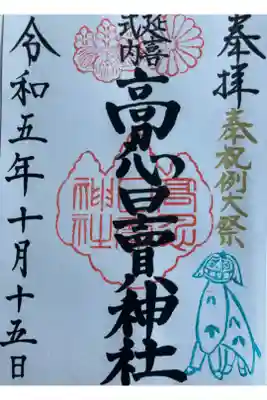 奉拝
奉祝例大祭
延喜
式内
高忍日賣神社
令和五年十月十五日